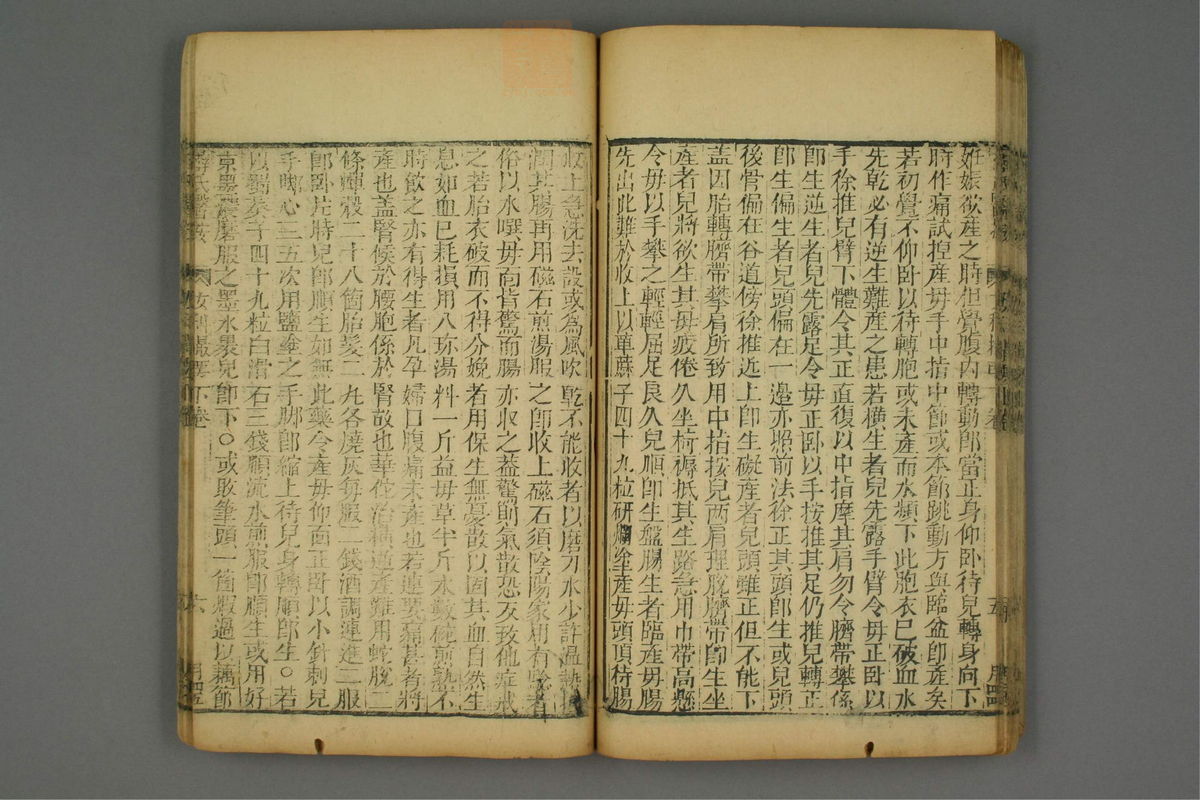 妊娠欲產之時但覺腹內轉動卽當正身仰卧待兒轉身向下
時作痛試揑產母手中指中節或本節跳動方與臨盆卽產矣
若初覺不仰卧以待轉胞或未產而水頻下此胞衣已破血水
先乾必有逆生難產之患若橫生者兒先露手臂令母正卧以
手徐推兒臂下體令其正直復以中指摩其肩勿令臍帶攀係
卽生逆生者兒先露足令母正卧以手按推其足仍推兒轉正
卽生偏生者兒頭偏在一邊亦照前法徐正其頭卽生或兒頭
後骨偏在谷道傍徐推近上卽生礙產者兒頭雖正但不能下
盖因胎轉臍帶攀肩所致用中指按兒两肩理脫臍帶卽生坐
產者兒將欲生其母疲倦久坐椅褥抵其生路急用巾帶高懸
令母以手攀之輕輕屈足良久兒順卽生盤腸生者臨產母腸
先出此難於收上以萆蔴子四十九粒研爛塗產母頭頂待腸
收上急洗去設或為風吹乾不能收者以磨刀水少許溫熱
潤其腸再用磁石煎湯服之卽收上磁石須陰陽家用有驗者
俗以水噀母面背驚而腸亦收之盖驚則氣散恐反致他症戒
之若胎衣破而不得分娩者用保生無憂散以固其血自然生
息如血已耗損用八珍湯料一斤益母草半斤水數碗煎熟不
時飲之亦有得生者凡孕婦口腹痛未產也若連腰痛甚者將
產也盖腎候於腰胞係於腎故也華佗治橫逆產難用蛇脫二
條蟬殼二十八箇胎髮二丸各燒灰每服一錢酒調連進二服
卽卧片時兒卽順生如無此藥令產母仰面正卧以小針刺兒
手脚心三五次用鹽塗之手脚卽縮上待兒身轉順卽生○若
以蒭麻子四十九粒白滑石三錢順流水煎服卽順生或用好
京墨磨服之墨水裹兒卽下○或敗筆頭一箇煅過以藕節
薛氏醫按 女科撮要下卷 六